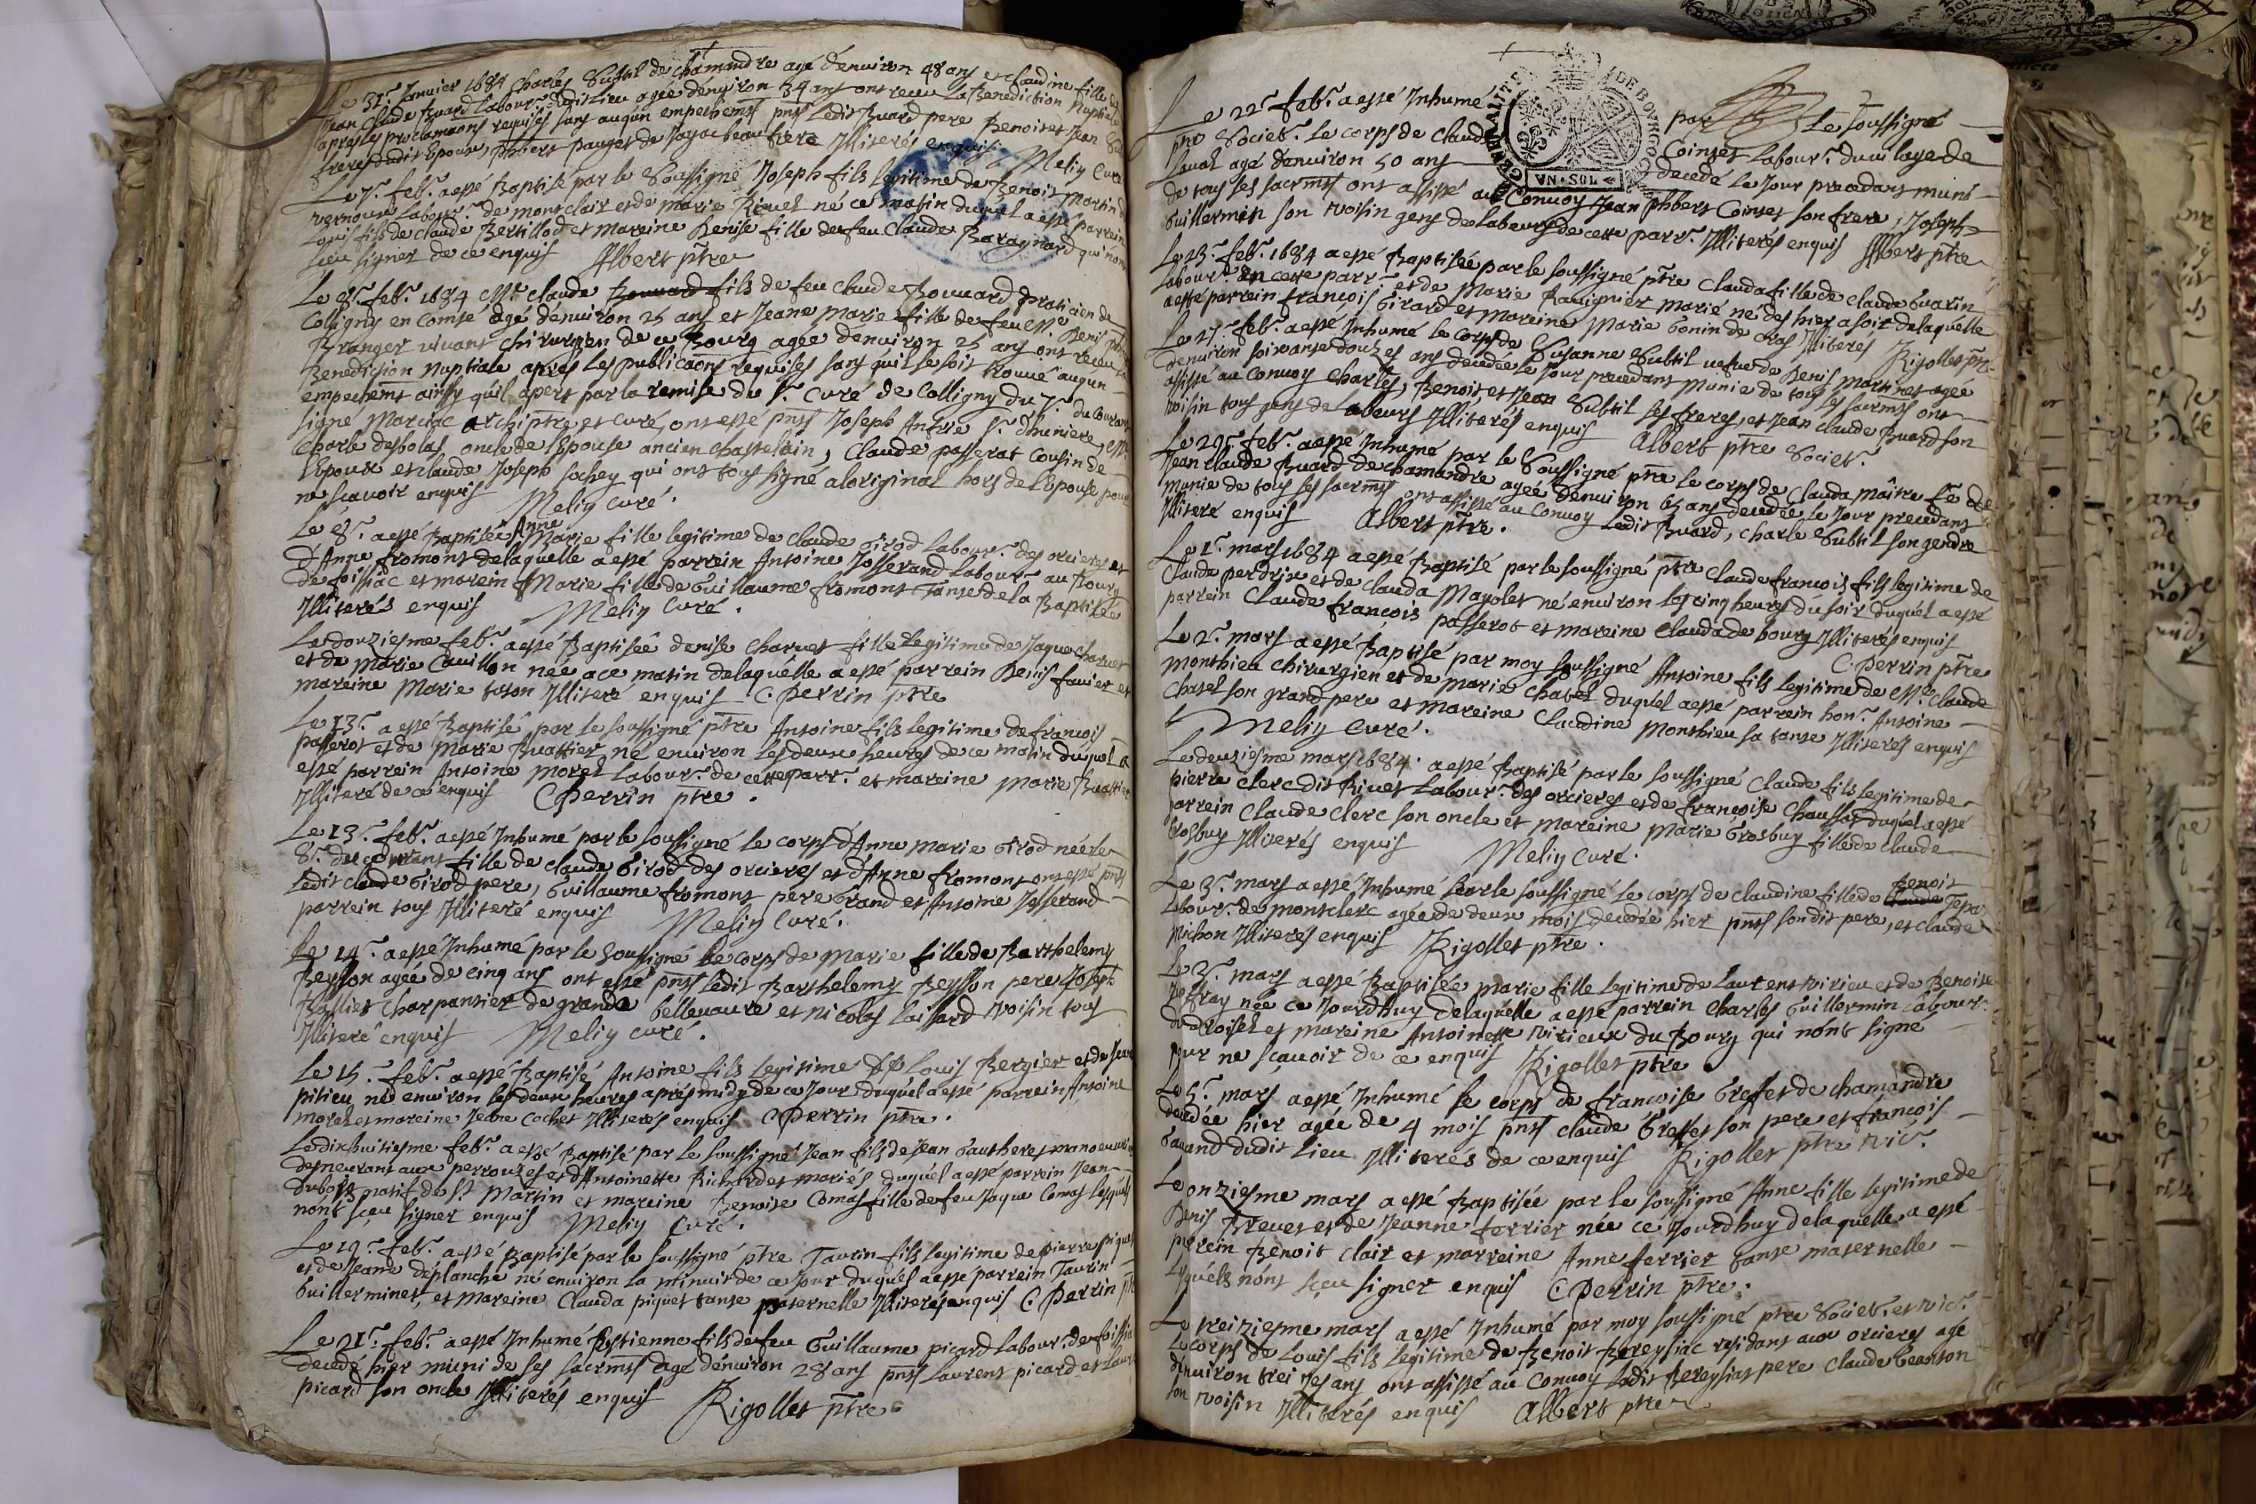 Le 31e. Januier 1684 Charles Subtil de chamandre agé denuiron 48 ans et claudine fille de
Jean Claude Buard Labour.r dudit Lieu agée denuiron 34 ans ont receu la Benediction Nuptiale
apres les proclamaons requises sans aucun empechemt pnts Ledit Buard pere Benoist et Jean
freres dudit Epoux, phbert pauget de Jayac beau frere Illiterés enquis Meliy Curé
Le 7e. feb.r a esté Baptisé par le Soussigné Joseph fils legitime de Benoit Martin
vernoux Labour.r de montclair et de marie Riuel né ce matin duquel a esté parrein
Louis fils de claude Bertillod et mareine Denise fille de feu Claude Baragnard qui n'ont
sceu signer de ce enquis Albert ptre
Le 8e. feb.r 1684 esst. claude fils de feu claude Bouuard praticien de
Colligny en Comté agé denuiron 25 ans et Jeane Marie fille de feu esse Denis
Branger viuant chirurgien de ce Bourg agée denuiron 25 ans ont receu la
Benediction nuptiale apres les publicaons requises sans quil se soit trouué augun
empechemt ainsy quil apert par la remise du Sr. Curé de Colligny du 7e. du courant
signé Marciac archiptre et curé, ont esté pnts Joseph Andre Sr. dheniere,
Charle desbolas oncle de l'Epouse ancien chastelain, Claude passerat Cousin de
l'Epoux et claude Joseph sochey qui ont tous signé a l'original hors de l'Epouse pour
ne scauoir enquis Meliy curé.
Le 8e. a esté Baptisée Anne Marie fille legitime de claude Girod Labour.r des orcieres et
d'Anne fromont delaquelle a esté parrein Antoine Josserand Labour.r au Bourg
de foissiac et marein Marie fille de Guillaume fromont Tante de la Baptisée
Illiterés enquis Meliy Curé.
Le douziesme feb.r a esté Baptisée denise charuet fille legitime de Jaque charuet
et de marie Cauillon née a ce matin delaquelle a esté parrein Denis fauier et
mareine Marie toton Illiteré enquis C. Perrin ptre
Le 13e. a esté Baptisé par le soussigné ptre Antoine fils legitime de francois
passerot et de Marie Buattier né enuiron les deux heures de ce matin duquel a
esté parrein Antoine Morel Labour.r de cette parr.e et mareine Marie Buattier
Illiteré de ce enquis C Perrin ptre.
Le 13e. feb.r a esté Inhumé par le soussigné le corps d'Anne marie Girod née le
8e. du courant fille de claude Girod des orcieres et d'Anne fromont ont esté pnts
Ledit claude Girod pere, Guillaume fromont pere Grand et Antoine Josserand
parrein tous Illiteré enquis Meliy Curé.
Le 14e. a esté Inhumé par le Soussigné le corps de Marie fille de Barthelemy
Beysson agée de cinq ans ont esté pnts Ledit Barthelemy Beysson pere Joseph
Charpantier de grande bellevaure et nicolas Caillard voisin tous
Illiteré enquis Meliy curé.
Le 15e. feb.r a esté Baptisé Antoine fils Legitime de Louis Bergier et de Jeane
pitieu né enuiron les deux heures apres midy de ce Jour duquel a esté parrein Antoine
morel et mareine Jeane Cochet Illiteres enquis C Perrin ptre.
Le dixhuitiesme feb.r a esté Baptisé par le Soussigné Jean fils de Jean Gautheret manoeuure
demeurant aux perrouzes et d'Antoinette Richardet mariés duquel a esté parrein Jean
dubois natif de St Martin et mareine Benoise Comas fille de feu Jaque Comas lesquels
nont sceu signer enquis Meliy Curé.
Le 19e. feb.r a esté Baptisé par le soussigné ptre Taurin fils legitime de pierre piquet
et de Jeane deplanche né enuiron la minuit de ce Jour duquel a esté parrein Taurin
Guillerminet, et Mareine Clauda piquet tante paternelle Illiterés enquis C. Perrin ptre
Le 21e. feb.r a esté Inhumé Estienne fils de feu Guillaume picard Labour.r de foissiac
decedé hier muni de ses sacrmts agé denuiron 28 ans pnts Laurent picard et
picard son oncle Illiterés enquis Rigollet ptre
Le 22e. feb.r a esté Inhumé par Le soussigné
pre Societ.r le corps de Claude Coinset Labour.r du uilage de
Laual agé denuiron 50 ans decedé le Jour precedant muni
de tous ses sacrmts ont assisté au Conuoy Jean phbert Coinset son frere, Joseph
Guillermin son voisin gens de labeurs de cette parr.e Illiterés enquis Albert ptre
GENERALITE DE BOVRGOGNE
VN·SOL
Le 23e. feb.r 1684 a esté Baptisée par le soussigné ptre Clauda fille de claude Guarin
Labour.r en cette parr.e et de Marie Rauignier Marié née des hier a soir delaquelle
a esté parrein francois Girard et mareine Marie Gonin de Cras Illiteres Rigollet ptre
Le 27e. feb.r a esté Inhumé le corps de Susanne Subtil vefue de Denis Martinet agée
denuiron soixante douzes ans decedée le Jour precedant munie de tous ses sacrmts ont
assisté au Conuoy Charles, Benoist, et Jean Subtil ses freres, et Jean claude Buard son
voisin tous gens de labeurs Illiterés enquis Albert ptre Societ.r
Le 29e feb.r a esté Inhumé par le Soussigné ptre le corps de Clauda Maitre fe de
Jean Claude Buard de chamandre agée denuiron 65 ans decedée le Jour precedant
munie de tous ses sacrmts ont assisté au Conuoy Ledit Buard, Charle Subtil son gendre
Illiteré enquis Albert ptre.
Le 1e. mars 1684 a esté Baptisé par le soussigné ptre Claude francois fils legitime de
Claude perdrix et de clauda Mayolet né enuiron les cinq heures du soir duquel a esté
parrein Claude francois passerot et mareine Clauda de bourg Illiterés enquis
C. Perrin ptre
Le 2e. mars a esté Baptisé par moy soussigné Antoine fils legitime de esst. Claude
Monthieu chirurgien et de marie chatel duquel a esté parrein hon.e Antoine
Chatel son grand pere et mareine Claudine Monthieu sa tante Illiteres enquis
Meliy Curé.
Le deuxiesme mars 1684. a esté Baptisé par le soussigné Claude fils legitime de
pierre clerc dit Riuet Labour.r des orcieres et de francoise Chaussat duquel a esté
parrein Claude Clerc son oncle et mareine Marie Grosbuy fille de claude
Grosbuy Illiterés enquis Meliy Curé.
Le 3e. mars a esté Inhumé par le soussigné le corps de claudine fille de Benoit
Labour.r de montclerc agée de deux mois decedée hier pnts son dit pere, et claude
Michon Illiteres enquis Rigollet ptre.
Le 3e. mars a esté Baptisée marie fille legitime de Laurent virieu et de Benoise
Jeffray née ce Jourdhuy delaquelle a esté parrein Charles Guillermin Labour.r
du droiset et mareine Antoinette virieux du Bourg qui nont signé
pour ne scauoir de ce enquis Rigollet ptre
Le 5e. mars a esté Inhumé le corps de francoise Greffet de chamandre
decedée hier agée de 4 mois pnts claude Greffet son pere et francois
Gauand dudit Lieu Illiterés de ce enquis Rigollet ptre vic.r
Le onziesme mars a esté Baptisée par le soussigné Anne fille legitime de
Denis Breuet et de Jeanne ferrier née ce Jourdhuy delaquelle a esté
parrein Benoit Clair et marreine Anne ferrier tante maternelle
lesquels nont sceu signer enquis C Perrin ptre.
Le treiziesme mars a esté Inhumé par moy soussigné ptre Societ.r et vic.r
le corps de Louis fils legitime de Benoit Bereyziac residant aux orcieres agé
denuiron treizes ans ont assisté au Conuoy Ledit Bereyziat pere Claude Geanton
son voisin Illiterés enquis Albert ptre